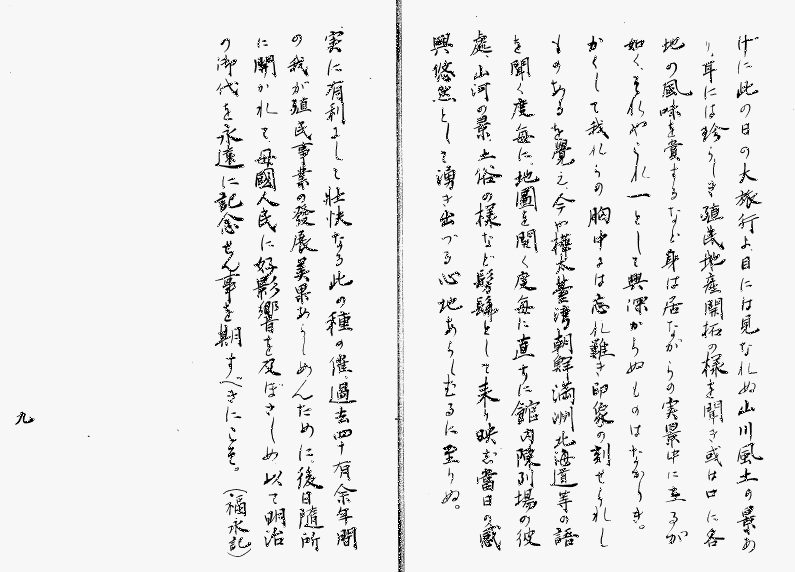 げに此の日の大旅行よ目には見なれぬ山川風土の景あ
り、耳には珍らしき殖民地産開拓の様を聞き或は口に各
地の風味を賞するなど身は居ながらの実景中に在るが
如く、それやこれ一として興深からぬものはなかりき。
かくして我れらの胸中には忘れ難き印象の刻せられし
ものあるを覺え今や樺太臺湾朝鮮満洲北海道等の語
を聞く度毎に、地圖を開く度毎に直ちに館内陳列場の彼
處、山河の景、土俗の様など髣髴として来り映じ當日の感
興悠然として湧き出づる心地あらしむるに至りぬ。
実に有利にして壮快なる此の種の催、過去四十有余年間
の我が殖民事業の發展美果あらしめんために、後日隨所
に開かれて母國人民に好影響を及ぼさしめ以て明治
の御代を永遠に記念せん事を期すべきにこそ。(福永記)
九